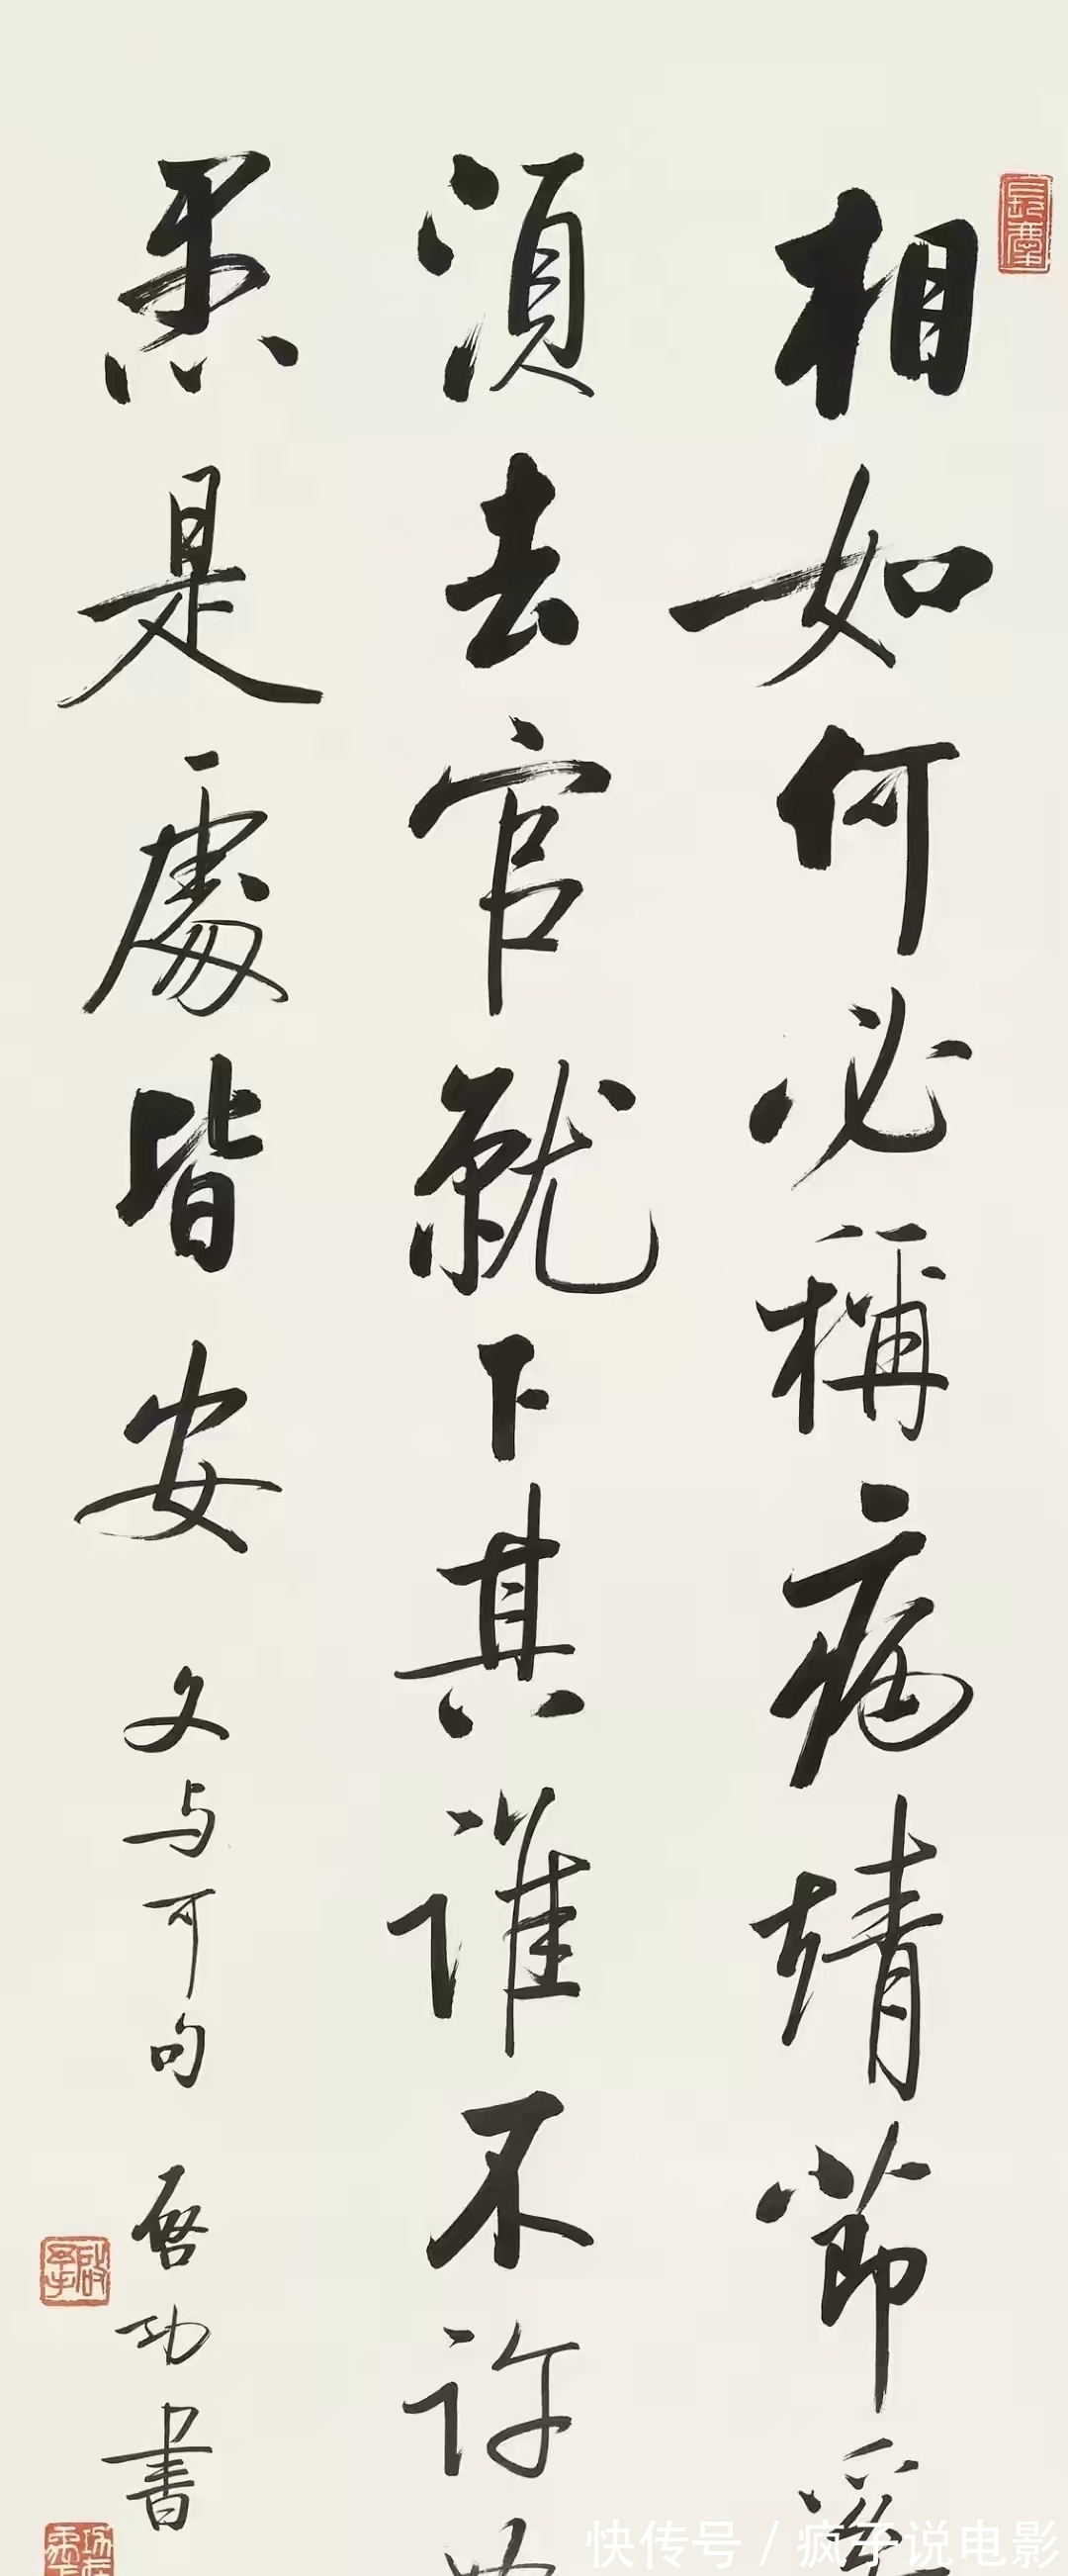 相如何必稱病靖節奚
須去官就下其誰不許如
愚是處皆安
文与可句 启功書
快传号 / 疯子说电影